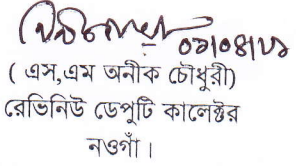 ( এস,এম অনীক চৌধুরী)
রেভিনিউ ডেপুটি কালেক্টর
নওগাঁ।